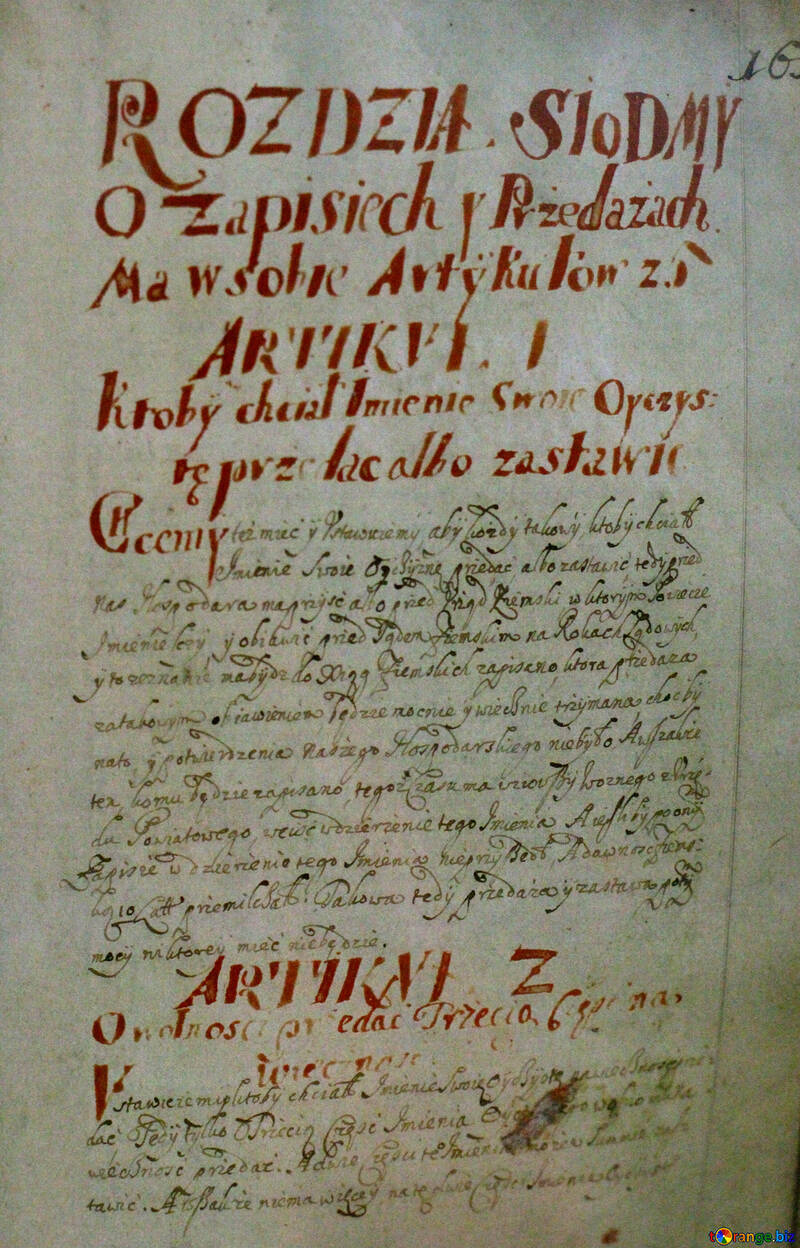 165
ROZDZIA SIODMY
O Zapisiech y Przedażach
Ma w sobie Artykułow
ARTIKVL I
Ktoby chciał Imienie Swoie Oyczys:
tę przedac albo zastawic
Chcemy też mieć y Vstawuiemy aby kożdy takowy ktoby chciał
Imienie Swoie Oyczyznę przedać albo zastawić tedy przed
nas Hospodara ma przyść albo przed Vrząd Ziemski w ktorym Powiecie
Imienie leży y obiawić przed Sądem Ziemskim na Rokach Sądowych
y to zeznanie ma bydz do Xiąg Ziemskich zapisano, ktora przedaża
za takowym obiawieniem będzie mocnie y wiecznie trzymana, choćby
na to y potwierdzenia naszego Hospodarskiego niebyło. A wszakże
ten, komu będzie zapisano, tegoż Czasu ma Woznego z Vrzę:
du Powiatowego, w dzierżenie tego Imienia. A ieśliby po
Zapisie w dzierżenie tego Imienia nieprzyszedł, A dawność Ziems:
ką 10 Latt przemilczał: Takowa tedy przedaża y zastawa
mocy niktorey mieć niebędzie.
ARTIKVL 2
O wolnosci przedać Trzecią Częsc na
wiecznosc
Vstawuiemy iż ktoby chciał Imienie Swoie Oyczyste na wieczność prze
dać Tedy tylko Trzecią Część Imienia
wieczność przedać. A dwie Części te Imienia może w Summie zas
tawić. A wszakże niema więcey na te dwie Części Imienia
tOrange.biz